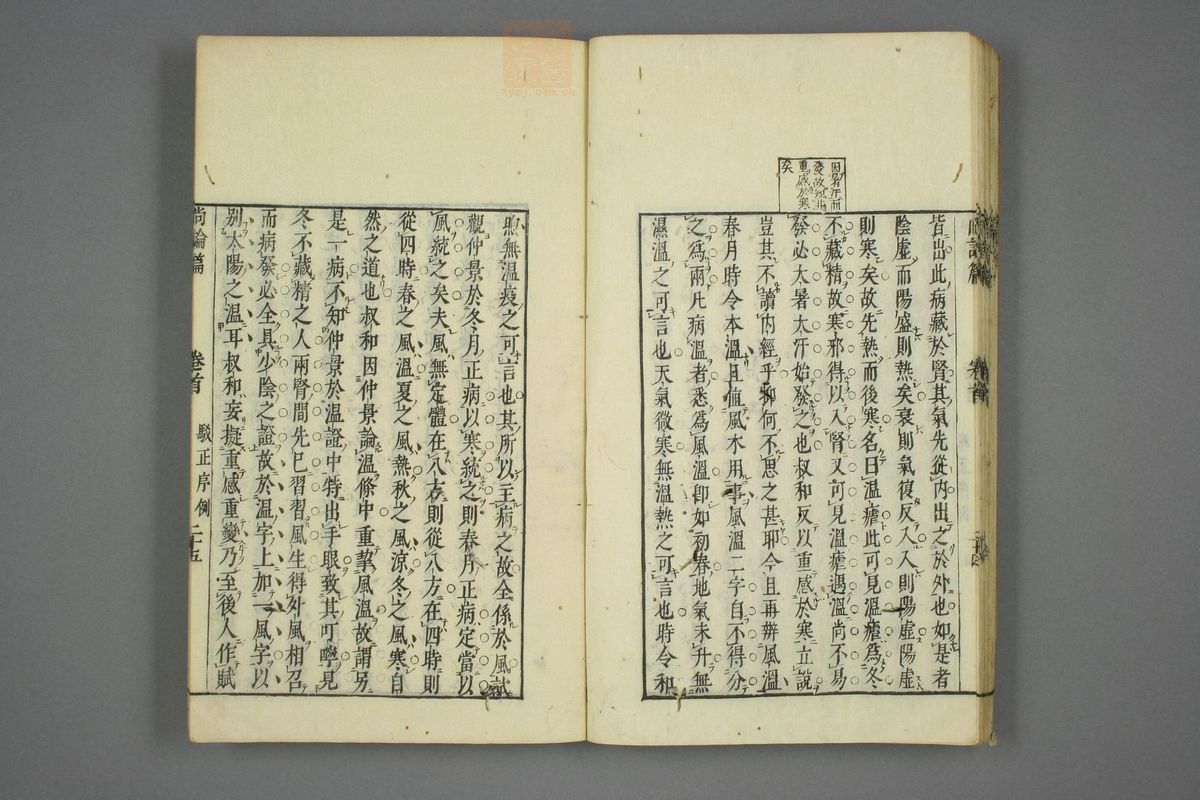 皆出此病藏於腎其氣先從內出之於外也如是者
陰虛而陽盛則熱矣衰則氣復反入入則陽虛陽虛
則寒矣故先熱而後寒名曰溫瘧此可見溫瘧爲冬
不藏精故寒邪得以入腎又可見溫瘧遇溫尚不易
發必大暑大汗始發之也叔和反以重感於寒立說
豈其不讀內經乎抑何不思之甚耶今且再辨風溫
春月時令本溫且値風木用事風溫二字自不得分
之爲兩凡病溫者悉爲風溫卽如初春地氣未升無
濕溫之可言也天氣微寒無溫熱之可言也時令和
因暑汗而
發故知非
重感於寒
矣
煦無溫疫之可言也其所以主病之故全係於風試
觀仲景於冬月正病以寒統之則春月正病定當以
風統之矣夫風無定體在八方則從八方在四時則
從四時春之風溫夏之風熱秋之風涼冬之風寒自
然之道也叔和因仲景論溫條中重挈風溫故謂另
是一病不知仲景於溫證中特出手眼致其叮嚀見
冬不藏精之人兩腎間先已習習風生得外風相召
而病發必全具少陰之證故於溫字上加一風字以
別太陽之溫耳叔和妄擬重感重變乃至後人作賦
尚論篇
卷首
駁正序例
二十五